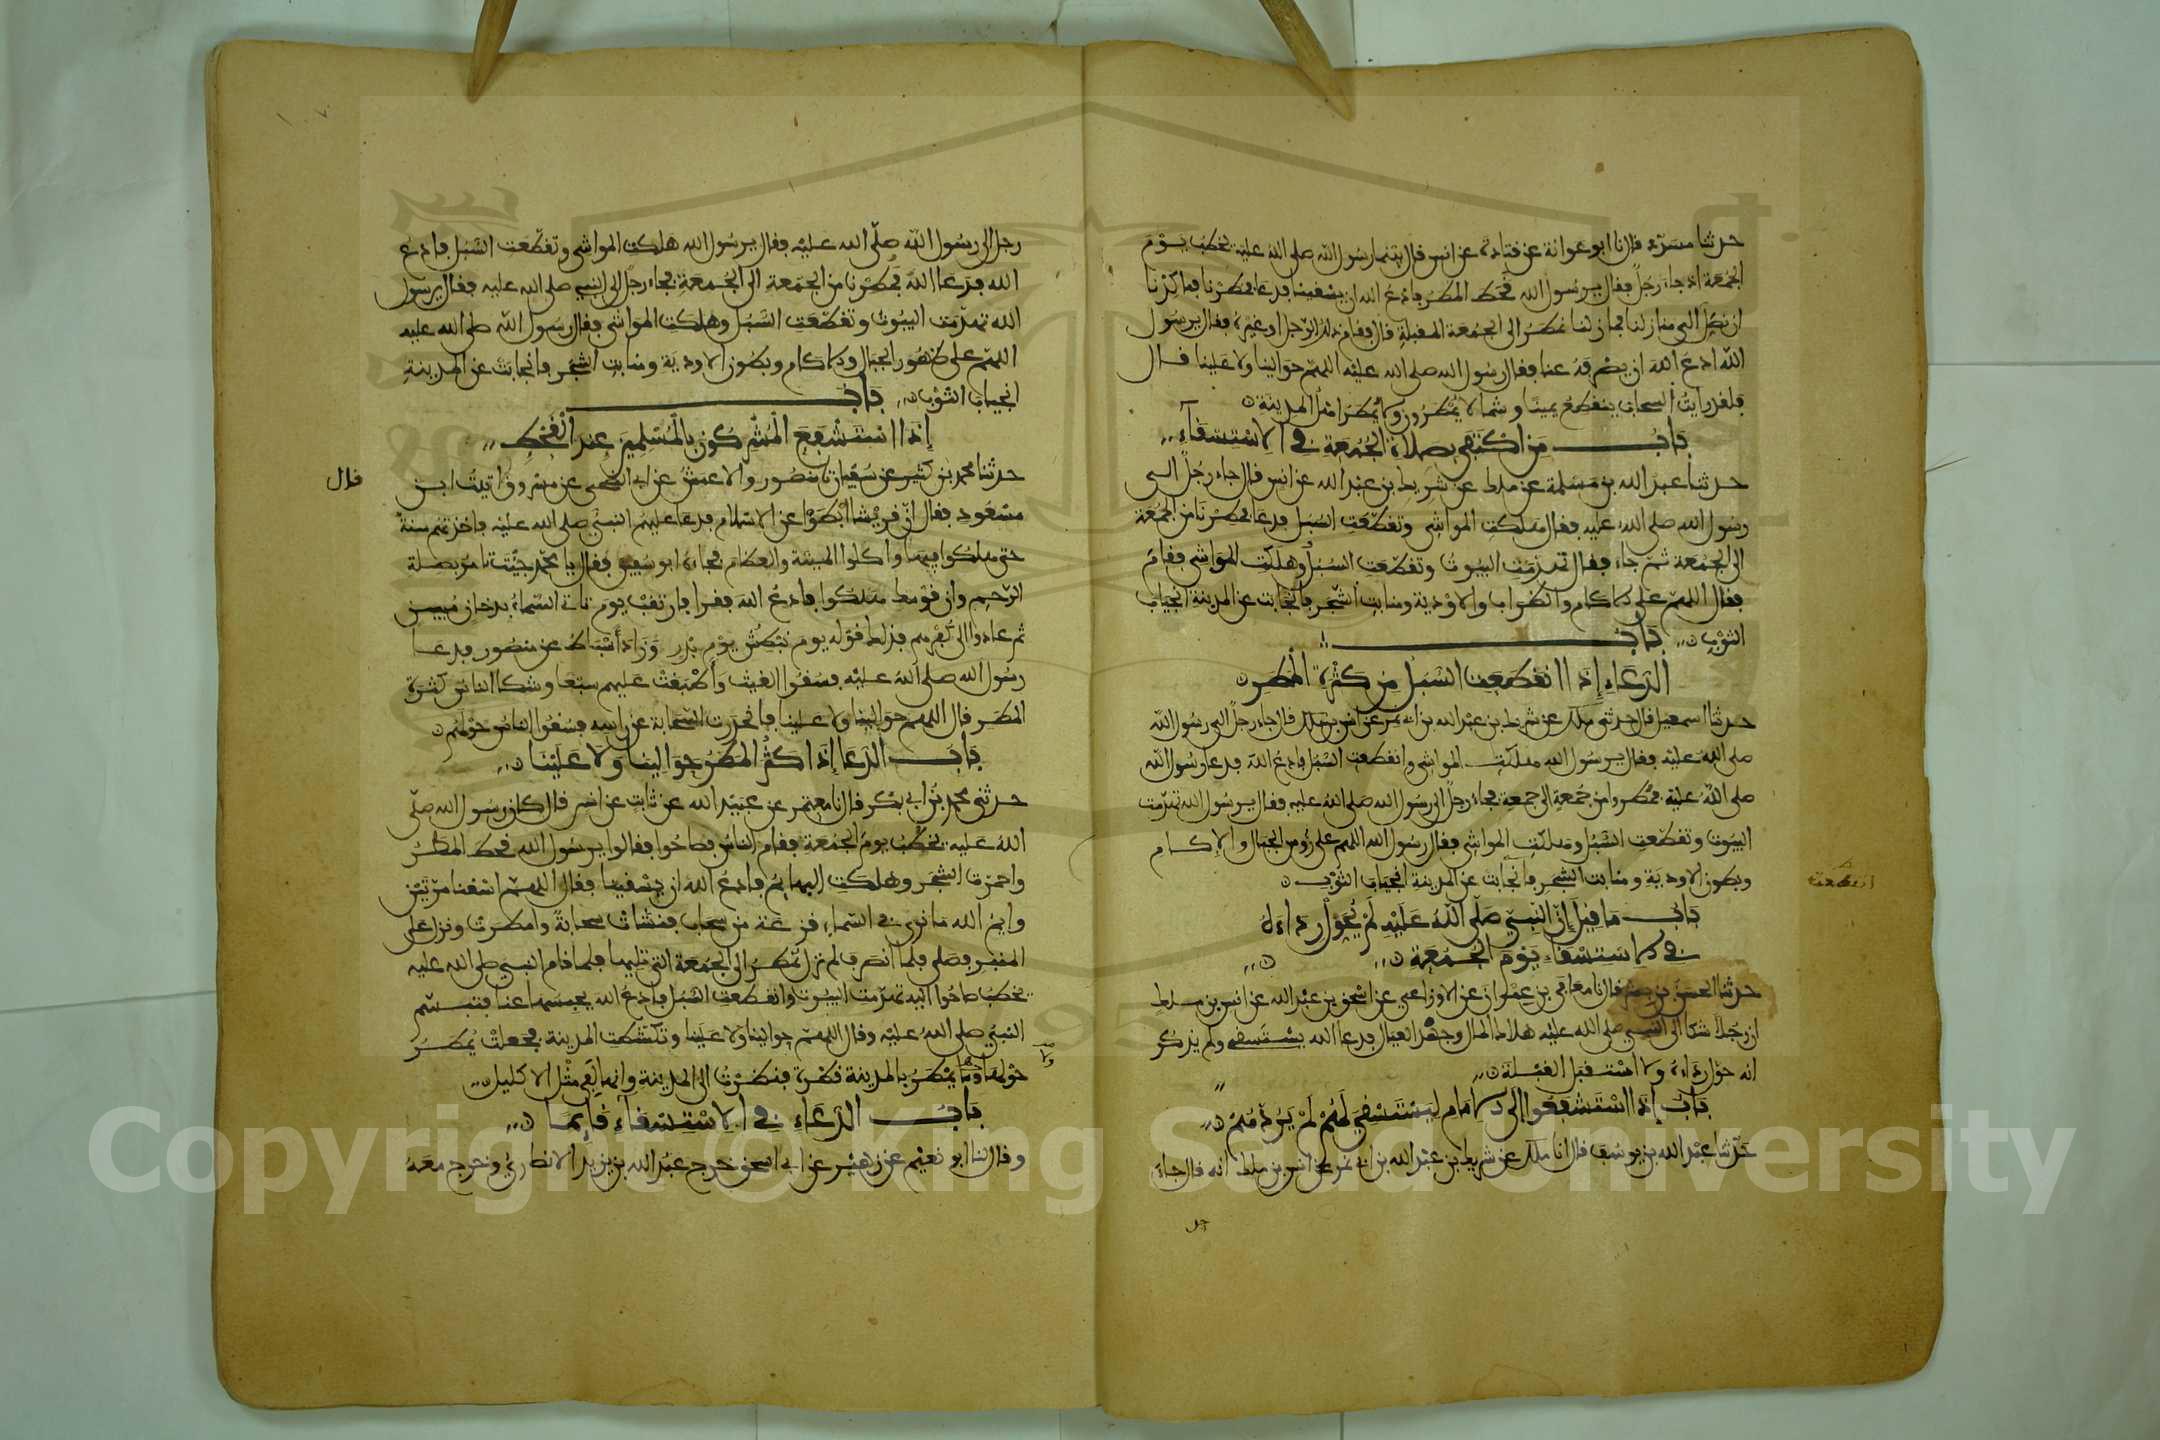 حدثنا مسدد قال نا ابو عوانة عن قتادة عن انس قال بينما رسول الله صلى الله عليه يخطب يوم
الجمعة اذ جاء رجل فقال يرسول الله قحط المطر فادع الله ان يسقينا فدعا فمطرنا فما كدنا
ان نصل الى منازلنا فما زلنا نمطر الى الجمعة المقبلة قال فقام ذلك الرجل او غيره فقال يرسول
الله ادع الله ان يصرفه عنا فقال رسول الله صلى الله عليه اللهم حوالينا ولا علينا قال
فلقد رايت السحاب يتقطع يمينا وشمالا يمطرون ولا يمطر اهل المدينة
باب من اكتفى بصلاة الجمعة في الاستسقاء
حدثنا عبد الله بن مسلمة عن ملك عن شريك بن عبد الله عن انس قال جاء رجل الى
رسول الله صلى الله عليه فقال هلكت المواشي وتقطعت السبل فدعا فمطرنا من الجمعة
الى الجمعة ثم جاء فقال تهدمت البيوت وتقطعت السبل وهلكت المواشي فقام
فقال اللهم على الاكام والظراب والاودية ومنابت الشجر فانجابت عن المدينة انجياب
الثوب باب
الدعاء إذا انقطعت السبل من كثرة المطر
حدثنا اسمعيل قال حدثني ملك عن شريك بن عبد الله بن ابي نمر عن انس بن ملك قال جاء رجل الى رسول الله
صلى الله عليه فقال يرسول الله هلكت المواشي وانقطعت السبل فادع الله فدعا رسول الله
صلى الله عليه فمطروا من جمعة الى جمعة فجاء رجل الى رسول الله صلى الله عليه فقال يرسول الله تهدمت
البيوت وتقطعت السبل وهلكت المواشي فقال رسول الله اللهم على رؤس الجبال والاكام
وبطون الاودية ومنابت الشجر فانجابت عن المدينة انجياب الثوب
باب ما قيل إن النبي صلى الله عليه لم يحول رداءه
في الاستسقاء يوم الجمعة
حدثنا الحسن بن بشر قال نا معافى بن عمران عن الاوزاعي عن اسحق بن عبد الله عن انس بن ملك
ان رجلا شكا الى النبي صلى الله عليه هلاك المال وجهد العيال فدعا الله يستسقي ولم يذكر
انه حول رداءه ولا استقبل القبلة
باب إذا استشفعوا إلى الامام ليستسقي لهم لم يردهم
حدثنا عبد الله بن يوسف قال انا ملك عن شريك بن عبد الله بن ابي نمر عن انس بن ملك انه قال جاء
رجل الى رسول الله صلى الله عليه فقال يرسول الله هلكت المواشي وتقطعت السبل فادع
الله فدعا الله فمطرنا من الجمعة الى الجمعة فجاء رجل الى النبي صلى الله عليه فقال يرسول
الله تهدمت البيوت وتقطعت السبل وهلكت المواشي فقال رسول الله صلى الله عليه
اللهم على ظهور الجبال والاكام وبطون الاودية ومنابت الشجر فانجابت عن المدينة
انجياب الثوب باب
إذا استشفع المشركون بالمسلمين عند القحط
حدثنا محمد بن كثير عن سفيان نا منصور والاعمش عن ابي الضحى عن مسروق اتيت ابن
قال
مسعود فقال ان قريشا ابطوا عن الاسلام فدعا عليهم النبي صلى الله عليه فاخذتهم سنة
حتى هلكوا فيها واكلوا الميتة والعظام فجاءه ابو سفين فقال يا محمد جئت تامر بصلة
الرحم وان قومك هلكوا فادع الله فقرا فارتقب يوم تاتي السماء بدخان مبين
ثم عادوا الى كفرهم فذلك قوله يوم نبطش يوم بدر وزاد أسباط عن منصور فدعا
رسول الله صلى الله عليه فسقوا الغيث وأطبقت عليهم سبعا وشكا الناس كثرة
المطر قال اللهم حوالينا ولا علينا فانحدرت السحابة عن راسه فسقوا الناس حولهم
باب الدعا إذا كثر المطر حوالينا ولا علينا
حدثني محمد بن ابي بكر قال نا معتمر عن عبيد الله عن ثابت عن انس قال كان رسول الله صلى
الله عليه يخطب يوم الجمعة فقام الناس فصاحوا فقالوا يرسول الله قحط المطر
واحمرت الشجر وهلكت البهايم فادع الله ان يسقينا فقال اللهم اسقنا مرتين
وايم الله ما نرى في السماء قزعة من سحاب فنشات سحابة وامطرت ونزل على
المنبر فصلى فلما انصرف لم تزل تمطر الى الجمعة التي تليها فلما قام النبي صلى الله عليه
يخطب صاحوا اليه تهدمت البيوت وانقطعت السبل فادع الله يحبسها عنا فتبسم
النبي صلى الله عليه وقال اللهم حوالينا ولا علينا وتكشطت المدينة فجعلت تمطر
حولها وما يمطر بالمدينة قطرة فنظرت الى المدينة وانها لفي مثل الاكليل
باب الدعاء في الاستسقاء قايما
وقال لنا ابو نعيم عن زهير عن ابي اسحق خرج عبد الله بن يزيد الانصاري وخرج معه
Copyright © King Saud University